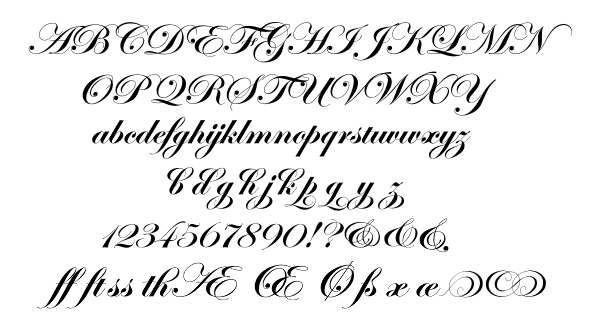 ABCDEFGHIJKLMN
OPQRSTUVWXY
abcdefghijklmnopqrstuvwxyz
b d g h j k p q y z
1234567890!?&&&.
ff ft ss th Æ Œ Ø ß æ œ